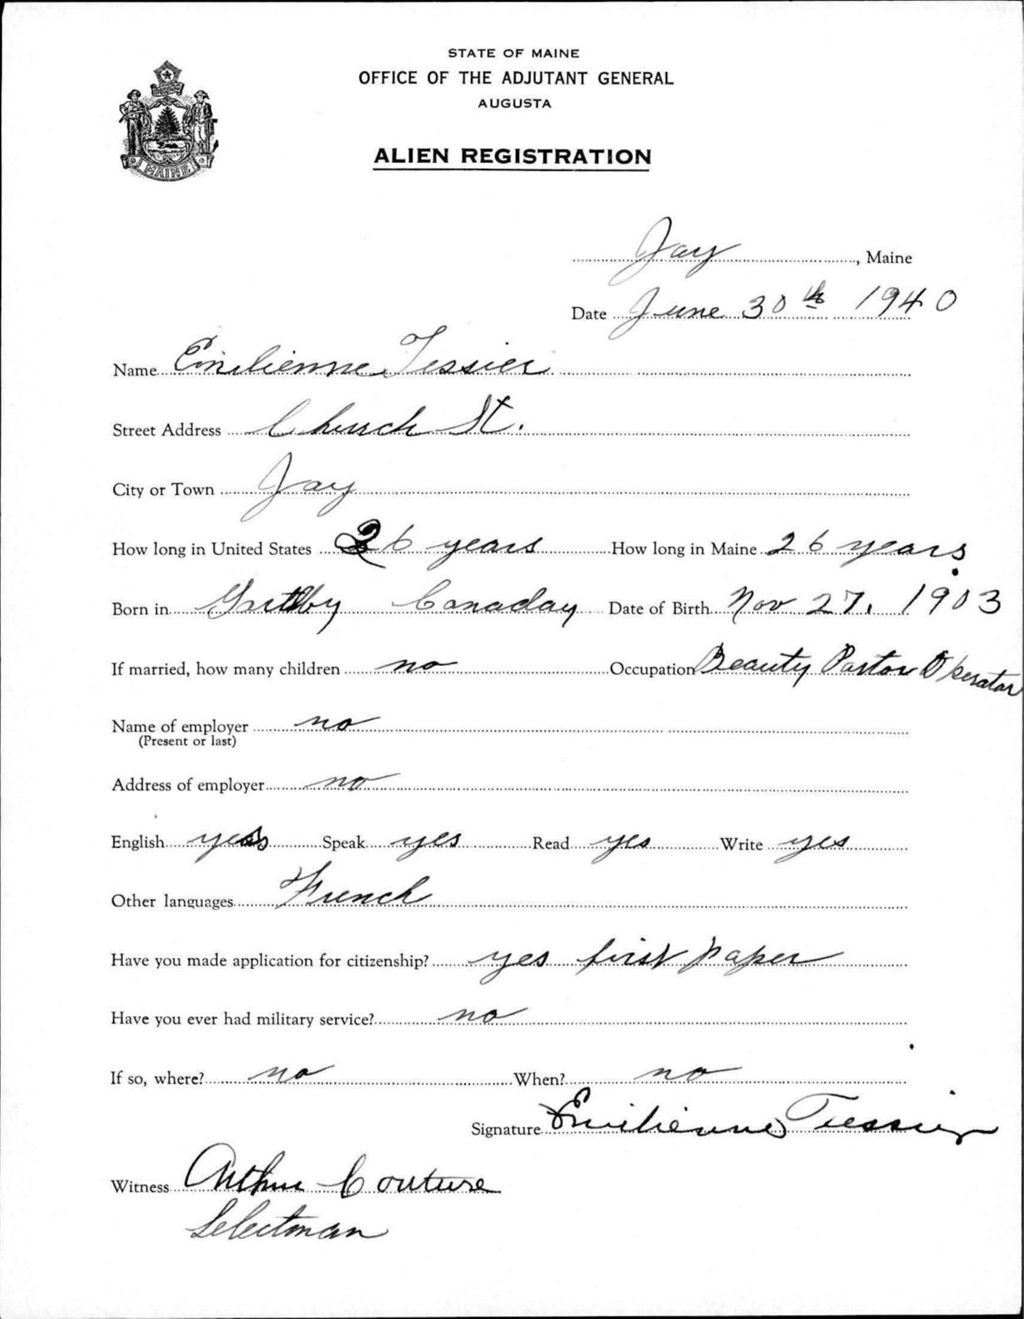 STATE OF MAINE
OFFICE OF THE ADJUTANT GENERAL
AUGUSTA
ALIEN REGISTRATION
MAINE
Jay, Maine
Date June 30th 1940
Name Emilienne Tessier
Street Address Church St.
City or Town Jay
How long in United States 26 years How long in Maine 26 years
Born in Canaday Date of Birth Nov 27, 1903
If married, how many children no Occupation Beauty Parlor Operator
Name of employer no
(Present or last)
Address of employer no
English yes Speak yes Read yes Write yes
Other languages French
Have you made application for citizenship? yes first paper
Have you ever had military service? no
If so, where? no When? no
Signature Emilienne Tessier
Witness Arthur Couture
Selectman